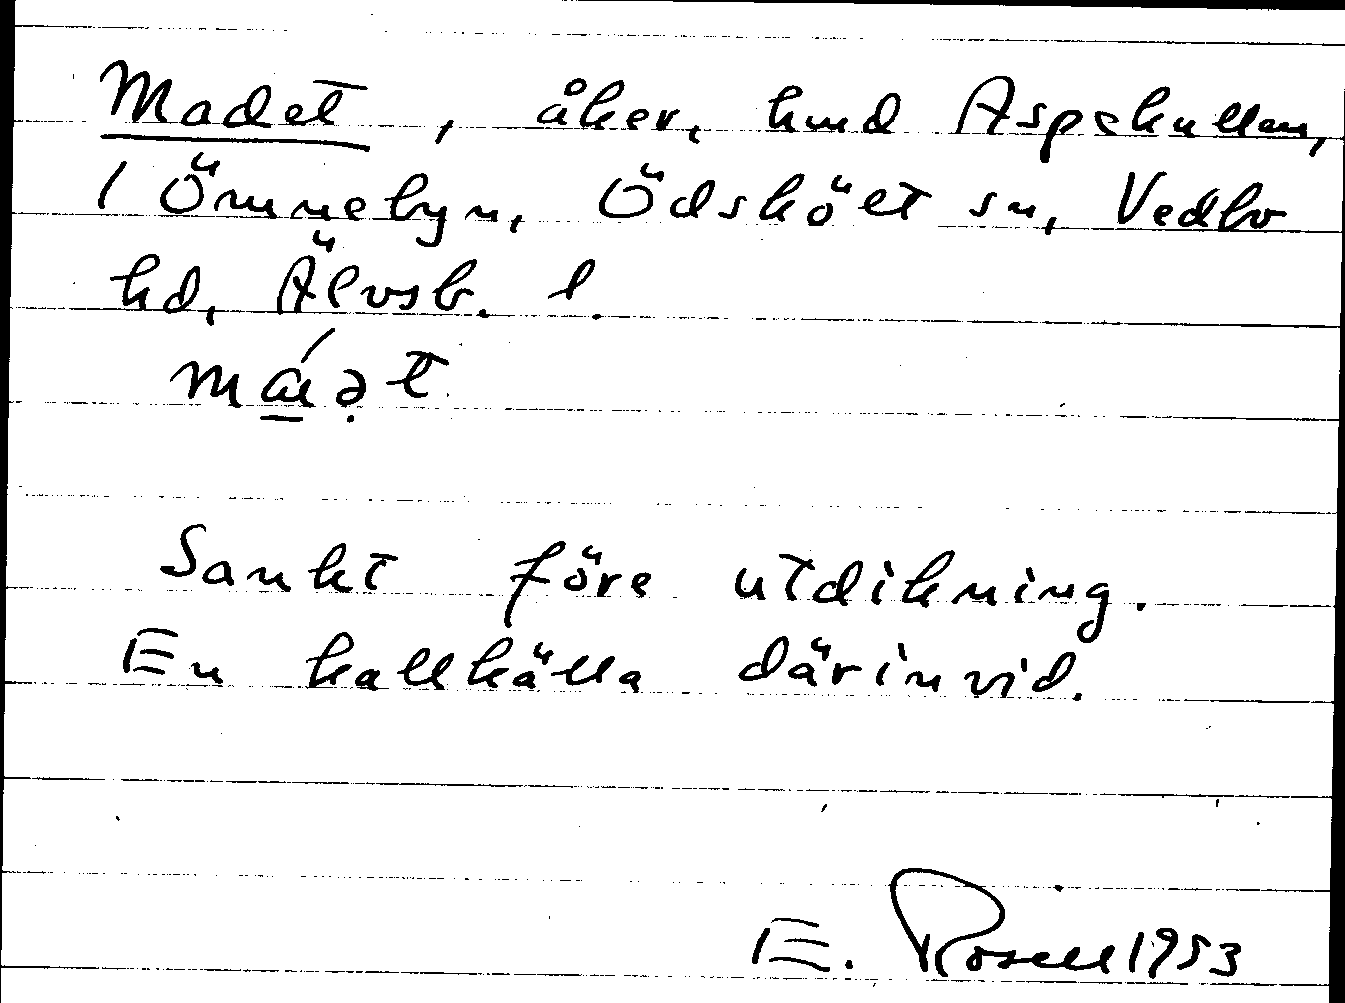 Madet, åker, hmd Aspekullen,
1 Ömmebyn, Ödskölt sn, Vedbo
hd, Älvsb. l.
Sankt före utdikning.
En kallkälla därinvid.
E. Rosell 1953